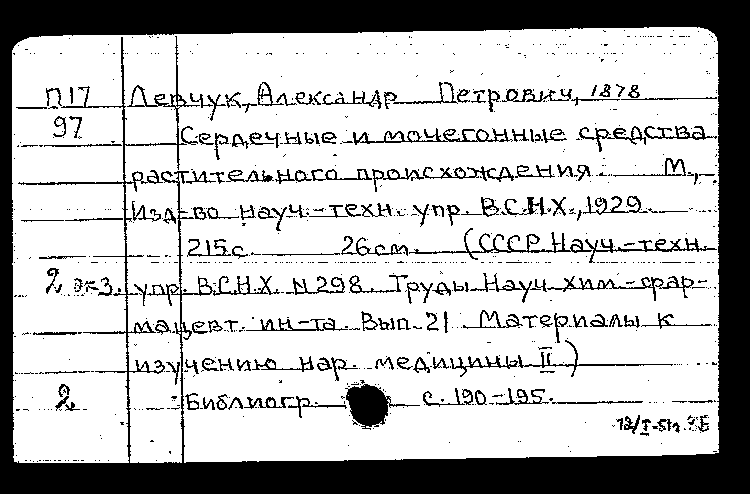 П17 Левчук, Александр Петрович, 1878
97 Сердечные и мочегонные средства
растительного происхождения. М.,
Изд-во Науч.-техн. упр. В.С.Н.Х., 1929.
215с. 26см. (СССР. Науч.-техн.
2 экз. упр. В.С.Н.Х. N 298. Труды Науч. хим.-фар-
мацевт. ин-та. Вып. 21. Материалы к
изучению нар. медицины II)
2 Библиогр. с. 190-195.
12/I-51г.